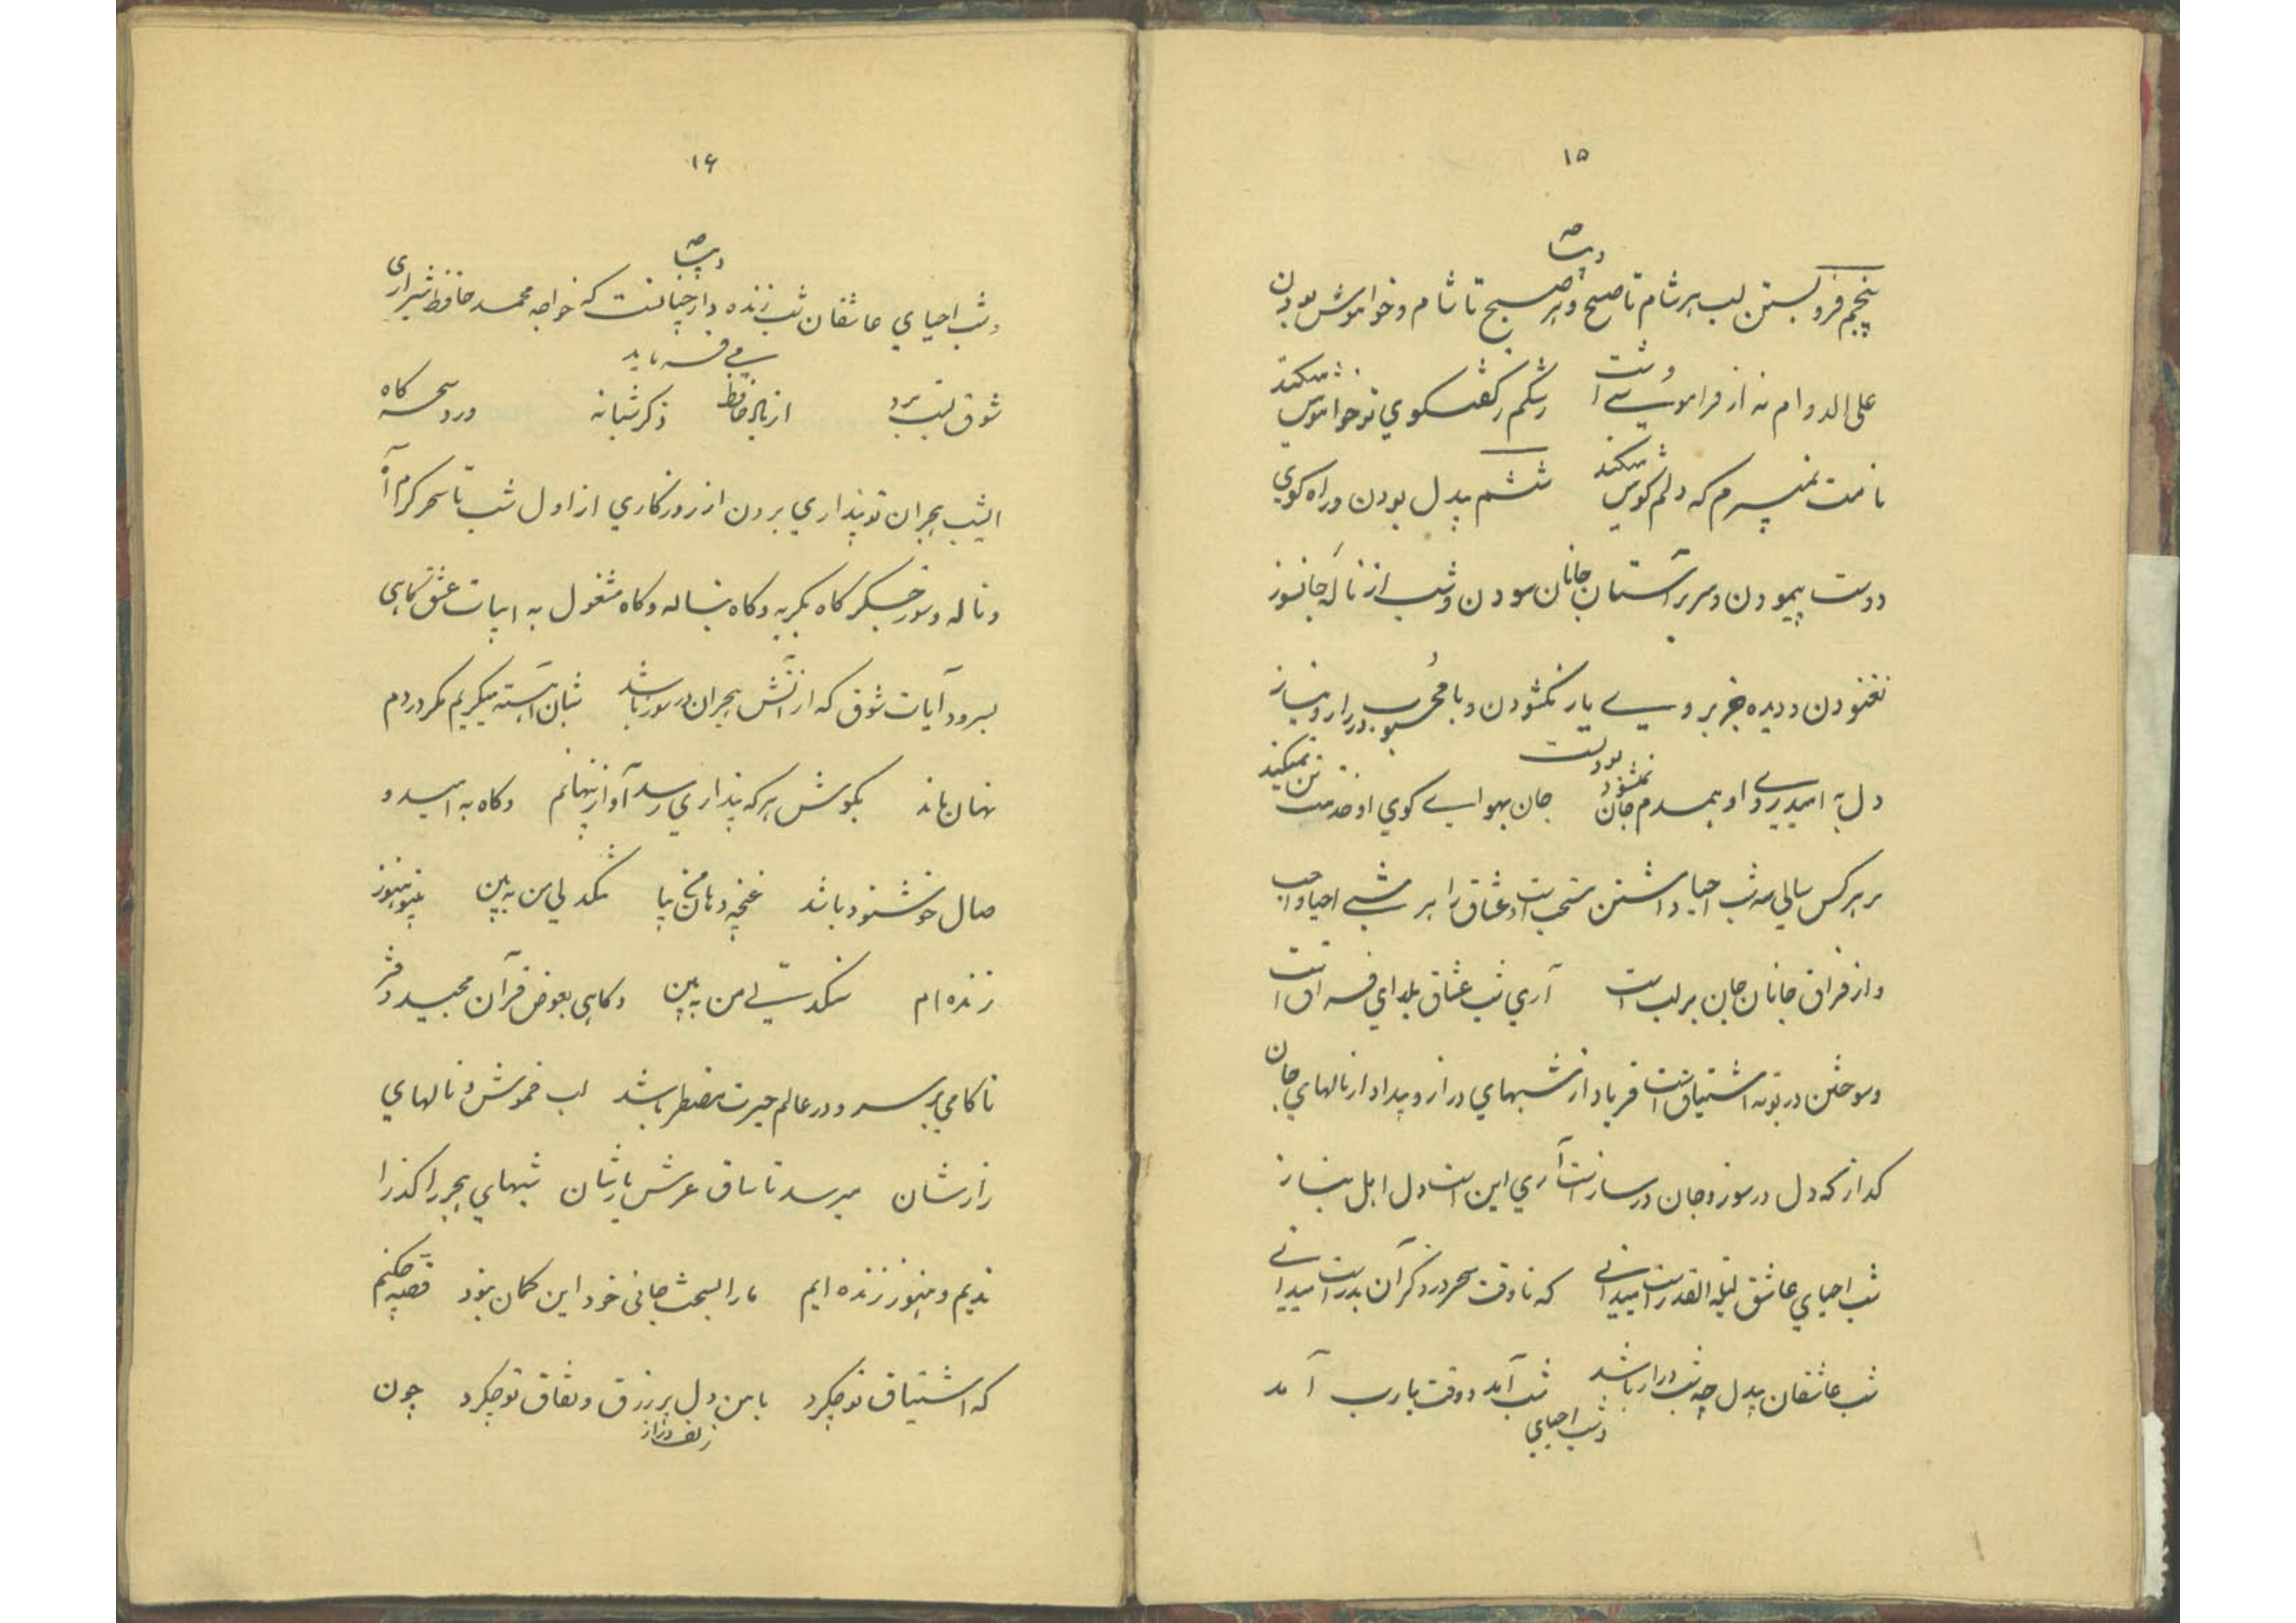 ۱۵
دیباچه
پنجم فرو بستن لب هر شام تا صبح و هر صبح تا شام و خواموش بودن
علی الدوام نه از فراموشی است رشکم ز گفتگوی تو خواموش میکند
نامت نمیبرم که دلم گوش میکند ششم بیدل بودن و راه کوی
دوست پیمودن و سر بر آستان جانان سودن و شب از نالهٔ جانسوز
نغنودن و دیده جز بر وسیے یار نگشودن و با محبوب در راز و نیاز بودنست
دل به امید او همدم جان نمیشود جان بهواے کوی او خدمت تن نمیکند
بر هر کس سالی سه شب احیا داشتن مستحب است و عشاق را هر شبے احیا واجب
و از فراق جانان جان بر لب است آری شب عشاق یلدای فراق است
و سوختن در بوته اشتیاق است فریاد از شبهای دراز و بیداد از نالهای جان
گداز که دل در سوز و جان در ساز است آری این است دل اهل نیاز
شب احیای عاشق لیلة القدر است میدانی که تا وقت سحر در ذکر آن بدر است میدانی
شب عاشقان بیدل چه شب دراز باشد شب آمد و وقت یارب آمد
و شب احیای
۱۶
دیباچه
و شب احیای عاشقان شب زنده دار چنانست که خواجه محمد حافظ شیرازی
می فرماید
شوق لبت برد از یاد حافظ ذکر شبانه ورد سحرگاه
الشب هجران تو پنداری برون از روزگاری از اول شب تا سحر گرم آه
و ناله و سوز جگر گاه بگریه و گاه بناله و گاه مشغول به ابیات عشق گاهی
بسرود آیات شوق که از آتش هجران در سوز باشد شبان آهسته میگریم مگر دردم
نهان ماند بگوش هر که پنداری رسد آواز پنهانم و گاه به امید و
صال خوشنود باشد غنچه دهان من بیا تنگدلی من ببین بیتو هنوز
زنده ام سنگدلی من ببین و گاهی بعوض قرآن مجید دفتر
ناکامی بر سر و در عالم حیرت مضطر باشد لب خموش و نالهای
زارشان میرسد تا ساق عرش یاربشان شبهای هجر را گذرا
ندیم و هنوز زنده ایم ما را بسخت جانی خود این گمان نبود قصه چکنم
که اشتیاق تو چکرد با من دل پر زرق و نفاق تو چکرد چون
زلف دراز